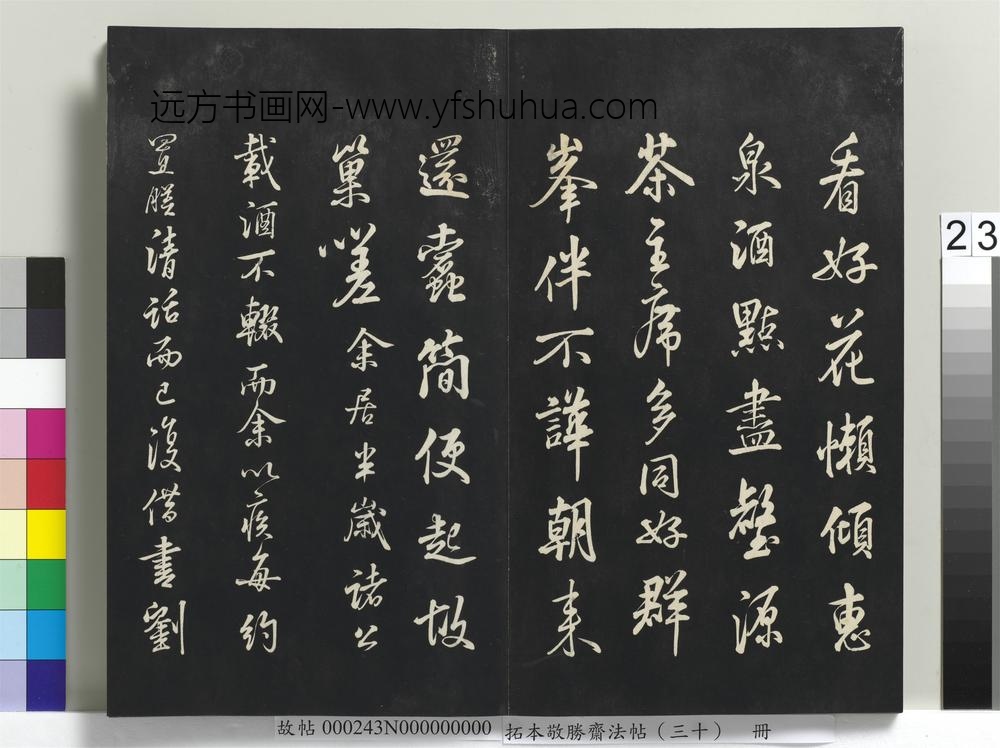 远方书画网-www.yfshuhua.com
看好花懶傾惠
泉酒點盡壑源
茶主席多同好群
峯伴不譁朝来
還蠹簡便起故
巢嗟余居半歲諸公
載酒不輟而余以疾每約
置膳清話而已復借書劉
23
故帖 000243N000000000 拓本敬勝齋法帖（三十） 冊